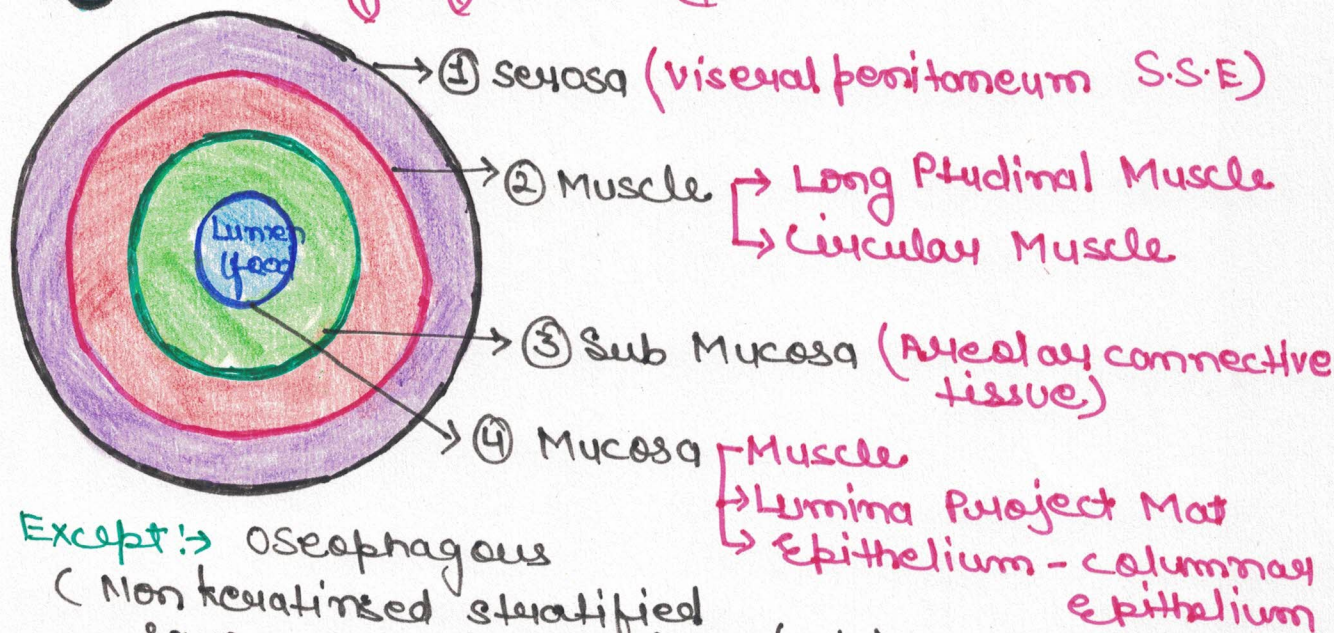 ① Serosa (Viseral penitoneum S.S.E)
② Muscle → Long Ptudinal Muscle
→ Circular Muscle
Lumen
③ Sub Mucosa (Areolar connective
tissue)
④ Mucosa Muscle
→ Lumina Project Mat
→ Epithelium - columnar
epithelium
Except :→ Oseophagous
( Non keratinsed stratified